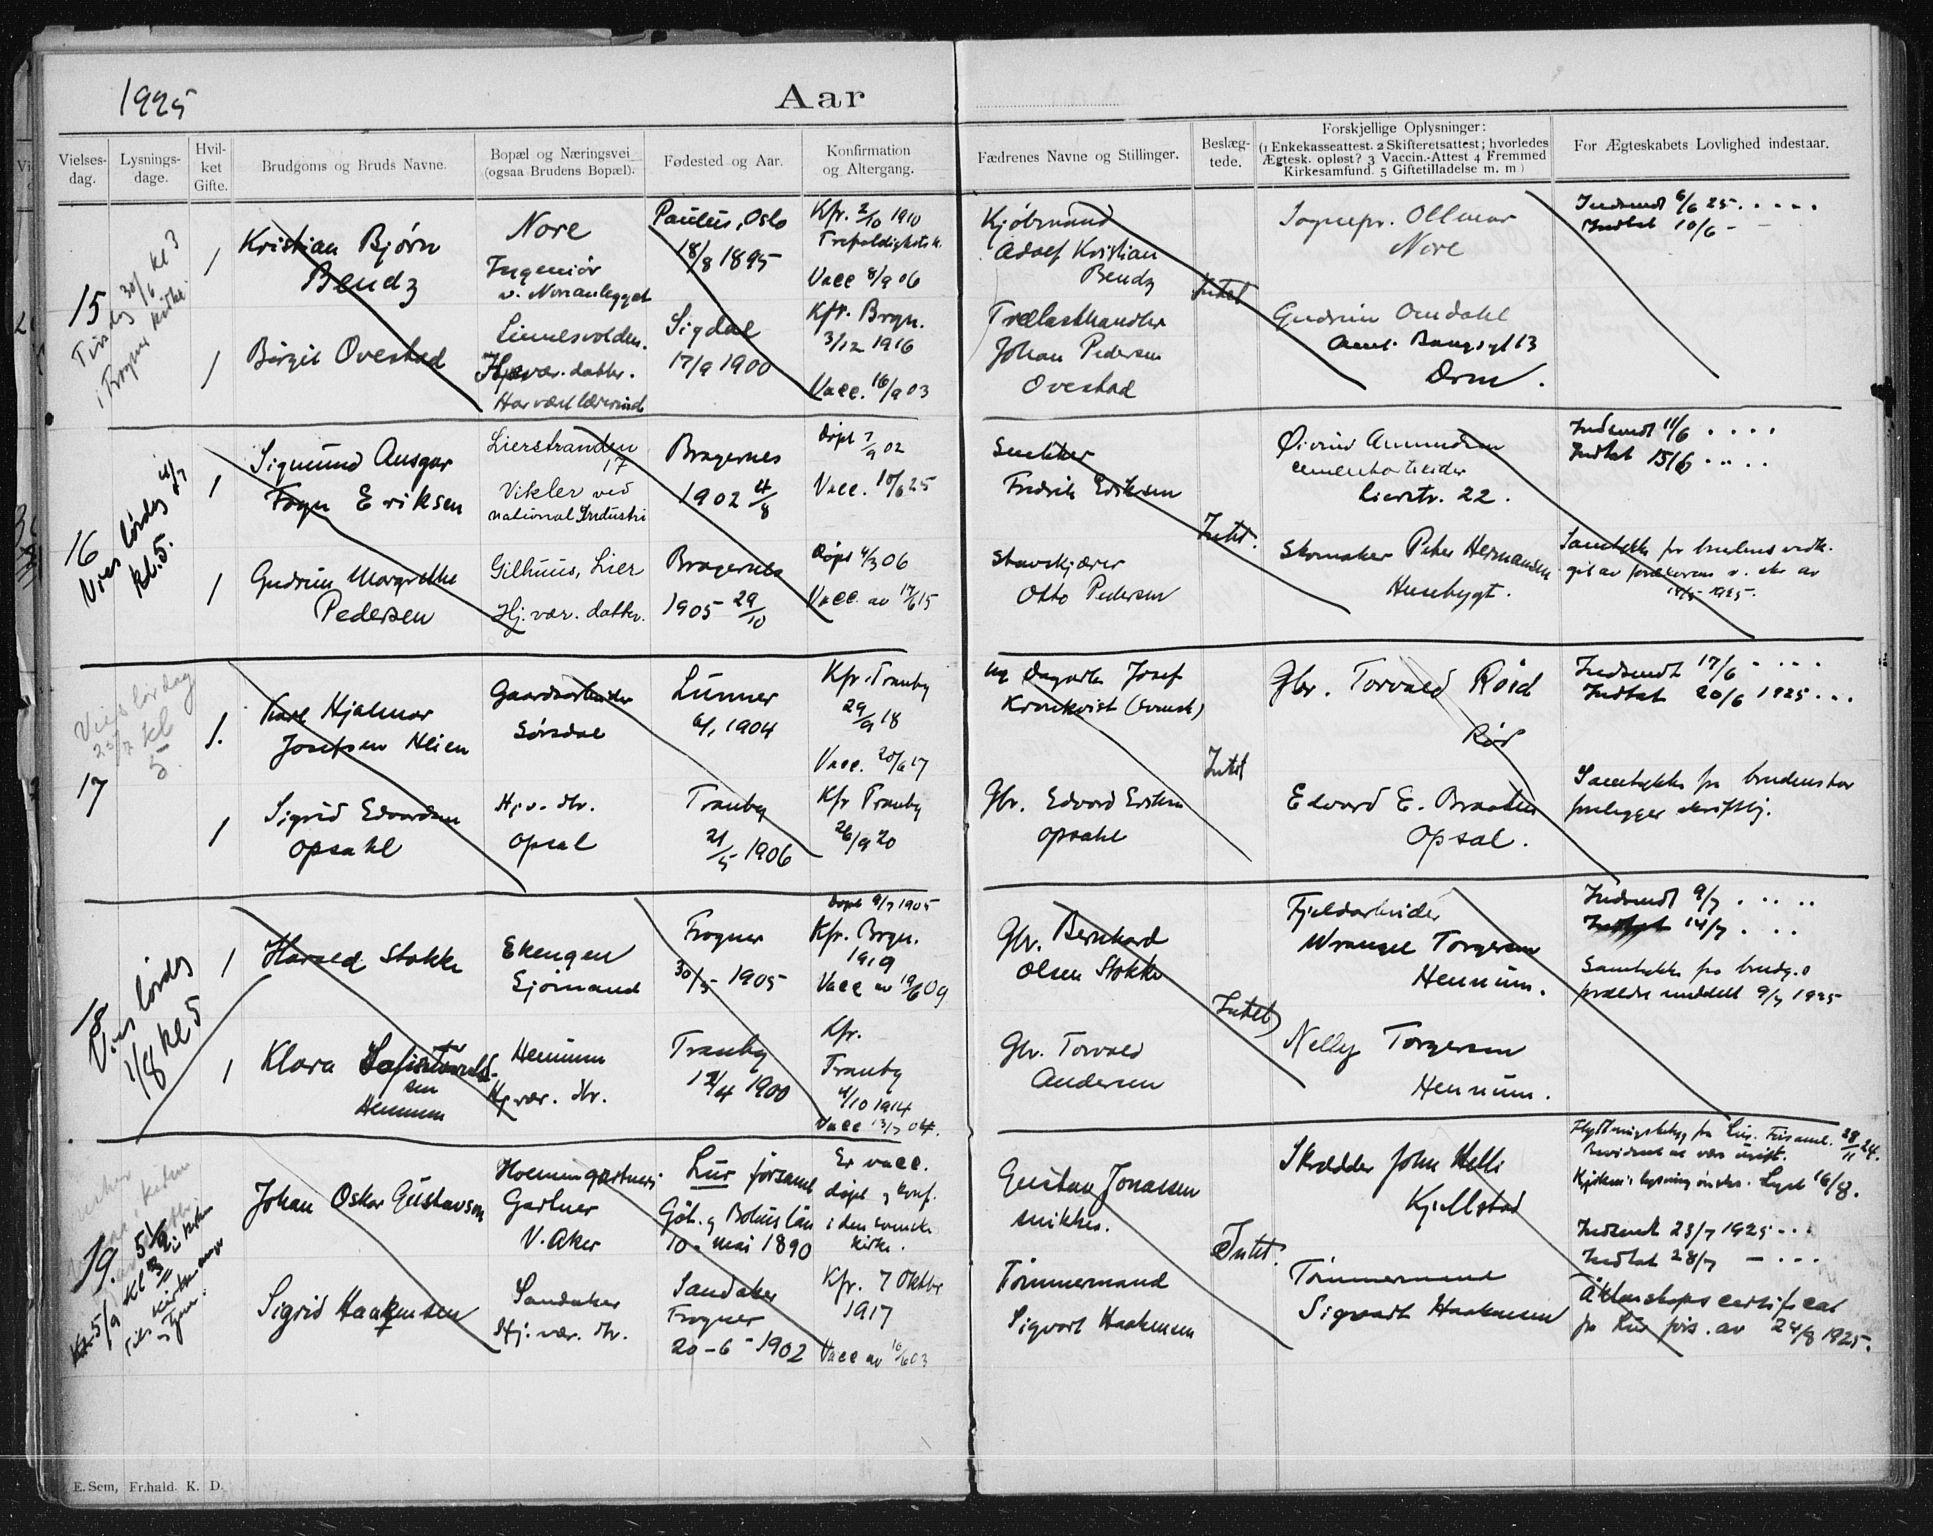 1925
Aar
Vielses-
dag.
Lysnings-
dage.
Hvil-
ket
Gifte.
Brudgoms og Bruds Navne.
Bopæl og Næringsvei
(ogsaa Brudens Bopæl).
Fødested og Aar.
Konfirmation
og Altergang.
Fædrenes Navne og Stillinger.
Beslæg-
tede.
Forskjellige Oplysninger:
(1 Enkekasseattest. 2 Skifteretsattest; hvorledes
Ægtesk. opløst? 3 Vaccin.-Attest 4 Fremmed
Kirkesamfund. 5 Giftetilladelse m. m)
For Ægteskabets Lovlighed indestaar.
15
Tirsdag 30/6 kl 3
i Bragnes kirke.
1
Kristian Bjørn
Bendz
Nore
Ingeniør
v. Noreanlegget
Paulus, Oslo
18/8 1895
Kfr. 2/10 1910
Trefoldighetsk.
Vacc 8/9 06
Kjøbmand
Adolf Kristian
Bendz
Intet
Sognepr. Ollmar
Nore
Indsendt 6/6 25
Indtat 10/6
1
Birgit Ovestad
Linnesvolden.
Hj. vær. datter.
Har vært lærerinde
Sigdal
17/9 1900
Kfr. Brgn.
3/12 1916
Vacc. 16/9 03
Trælasthandler
Johan Pedersen
Ovestad
Gudrun Omdahl
Amt. Bangsgt 13
Drm.
16
Vies lørdag 11/7
kl. 5.
1
Sigmund Ansgar
Fogn Eriksen
Lierstranden
17
Vikler ved
national Industri
Bragernes
1902 4/8
Døpt 7/9 02
Vacc. 10/6 25
Snekker
Fredrik Eriksen
Intet.
Øivind Amundsen
cementarbeider
Lierstr. 22.
Indsendt 11/6
Indtat 15/6
1
Gudrun Margrethe
Pedersen
Gilhuus, Lier
Hj. vær. datter.
Bragernes
1905 29/10
Døpt 4/3 06
Vacc. av 17/6 15
Otto Pedersen
Skomaker Peter Hermansen
Husebygt.
Samtykke fra brudens vedk.
git av forældrene
1925.
17
Vies lørdag
25/7 kl
5.
1.
Karl Hjalmar
Josefsen Hlien
Gaardsarbeider
Sørsdal
Lunner
6/1 1904
Kfr. Tranby
29/9 18
Vacc. 20/6 17
Dagarb. Josef
Kronkvist (svensk)
Intet
Gbr. Torvald Røid
Rød
Indsendt 17/6
Indtat 20/6 1925
1
Sigrid Edvardsen
Opsahl
Hj. v. dtr.
Opsal
Tranby
21/5 1906
Kfr Tranby
26/9 20
Gbr. Edvard Eriksen
Opsahl
Edvard E. Braaten
Opsal.
Samtykke fra brudens far
foreligger skriftlig.
18
Vies lørdag
1/8 kl 5
1
Harald Stokke
Ekengen
Sjømand
Frogner
30/5 1905
Døpt 9/7 1905
Kfr. Brgn.
1919
Vacc av 19/6 09
Gbr. Bernhard
Olsen Stokke
Intet
Fjeldarbeider
Wrangel Torgersen
Hennum.
Indsendt 9/7
Indtat 14/7
Samtykke fra brudg.s
forældre meddelt 9/7 1925
1
Klara
sen
Hennum
Hennum
Hj. vær. dtr.
Tranby
12/4 1900
Kfr.
Tranby
4/10 1914
Vacc 13/7 04.
Gbr. Torvald
Andersen
Nelly Torgersen
Hennum.
19.
5/9
Kl 3
i kirken
Johan Oskar Gustavson
Holmengartneri
Gartner
V. Aker
Lur församl.
Göt. og Bohus län
10. mai 1890
Er vacc.
døpt og konf.
i den svenske
kirke.
Gustav Jonassen
snikker.
Intet.
Skrædder John Helli
Kjellstad
Flyttningsbetyg fra Lur. Församl. 28/11 24.
Indsendt 23/7 1925
Indtat 28/7
Sigrid Haakensen
Sandaker
Hj. vær. dtr.
Sandaker
Frogner
20-6-1902
Kfr. 7 Oktbr
1917
Vacc av 16/6 03
Tømmermand
Sigvart Haakensen
Tømmermand
Sigvardt Haakensen
Äktenskapscertifikat
fra Lur förs. av 24/8 1925.
E. Sem, Fr.hald. K. D.